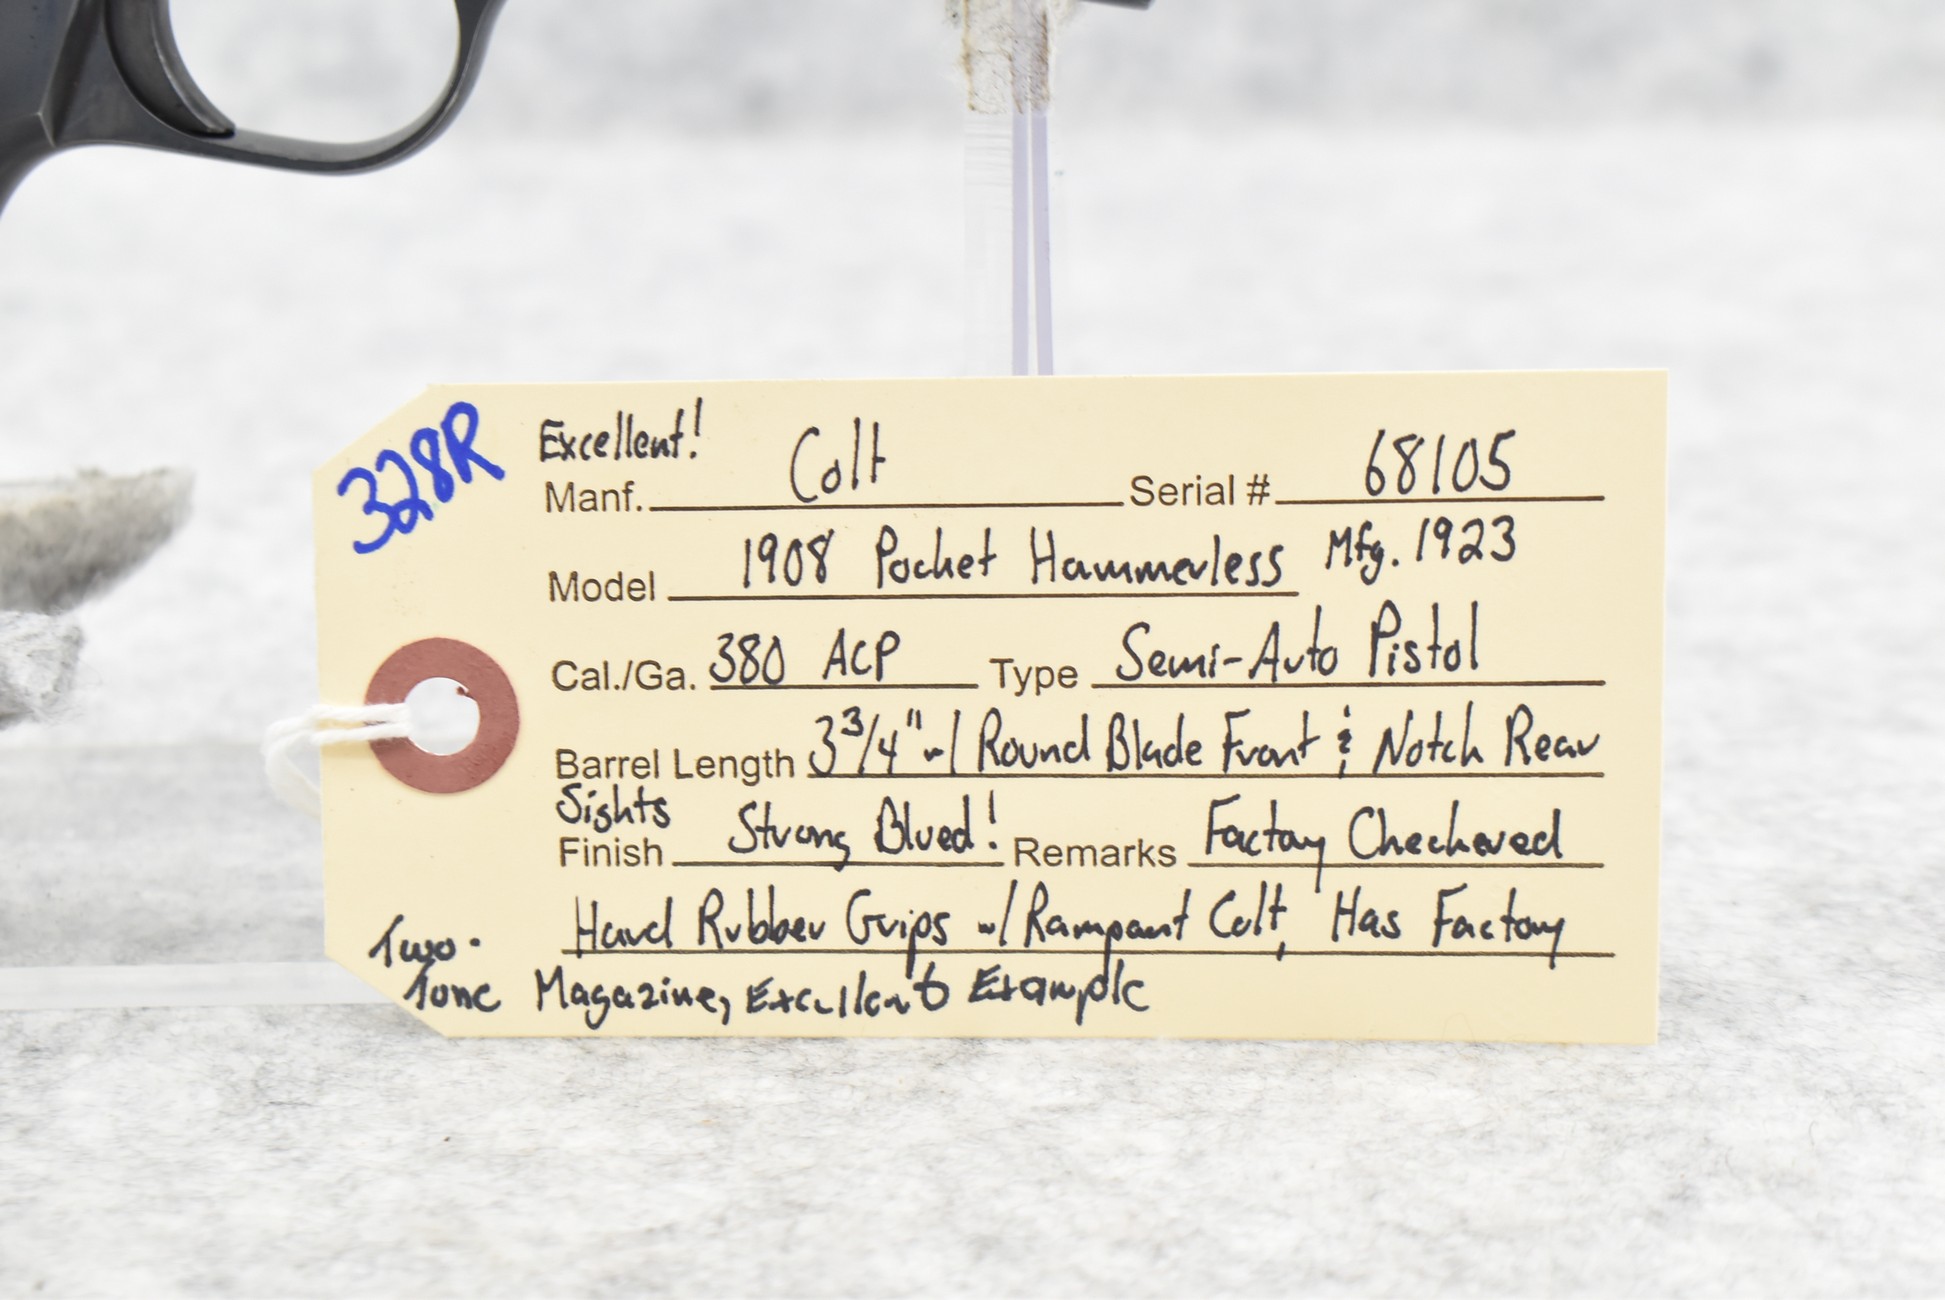 328R
Excellent!
Manf. Colt Serial # 68105
Model 1908 Pocket Hammerless Mfg. 1923
Cal./Ga. 380 ACP Type Semi-Auto Pistol
Barrel Length 3 3/4" w/ Round Blade Front & Notch Rear
Sights
Finish Strong Blued! Remarks Factory Checkered
Hard Rubber Grips w/ Rampant Colt, Has Factory
Two-
Tone Magazine, Excellent Example